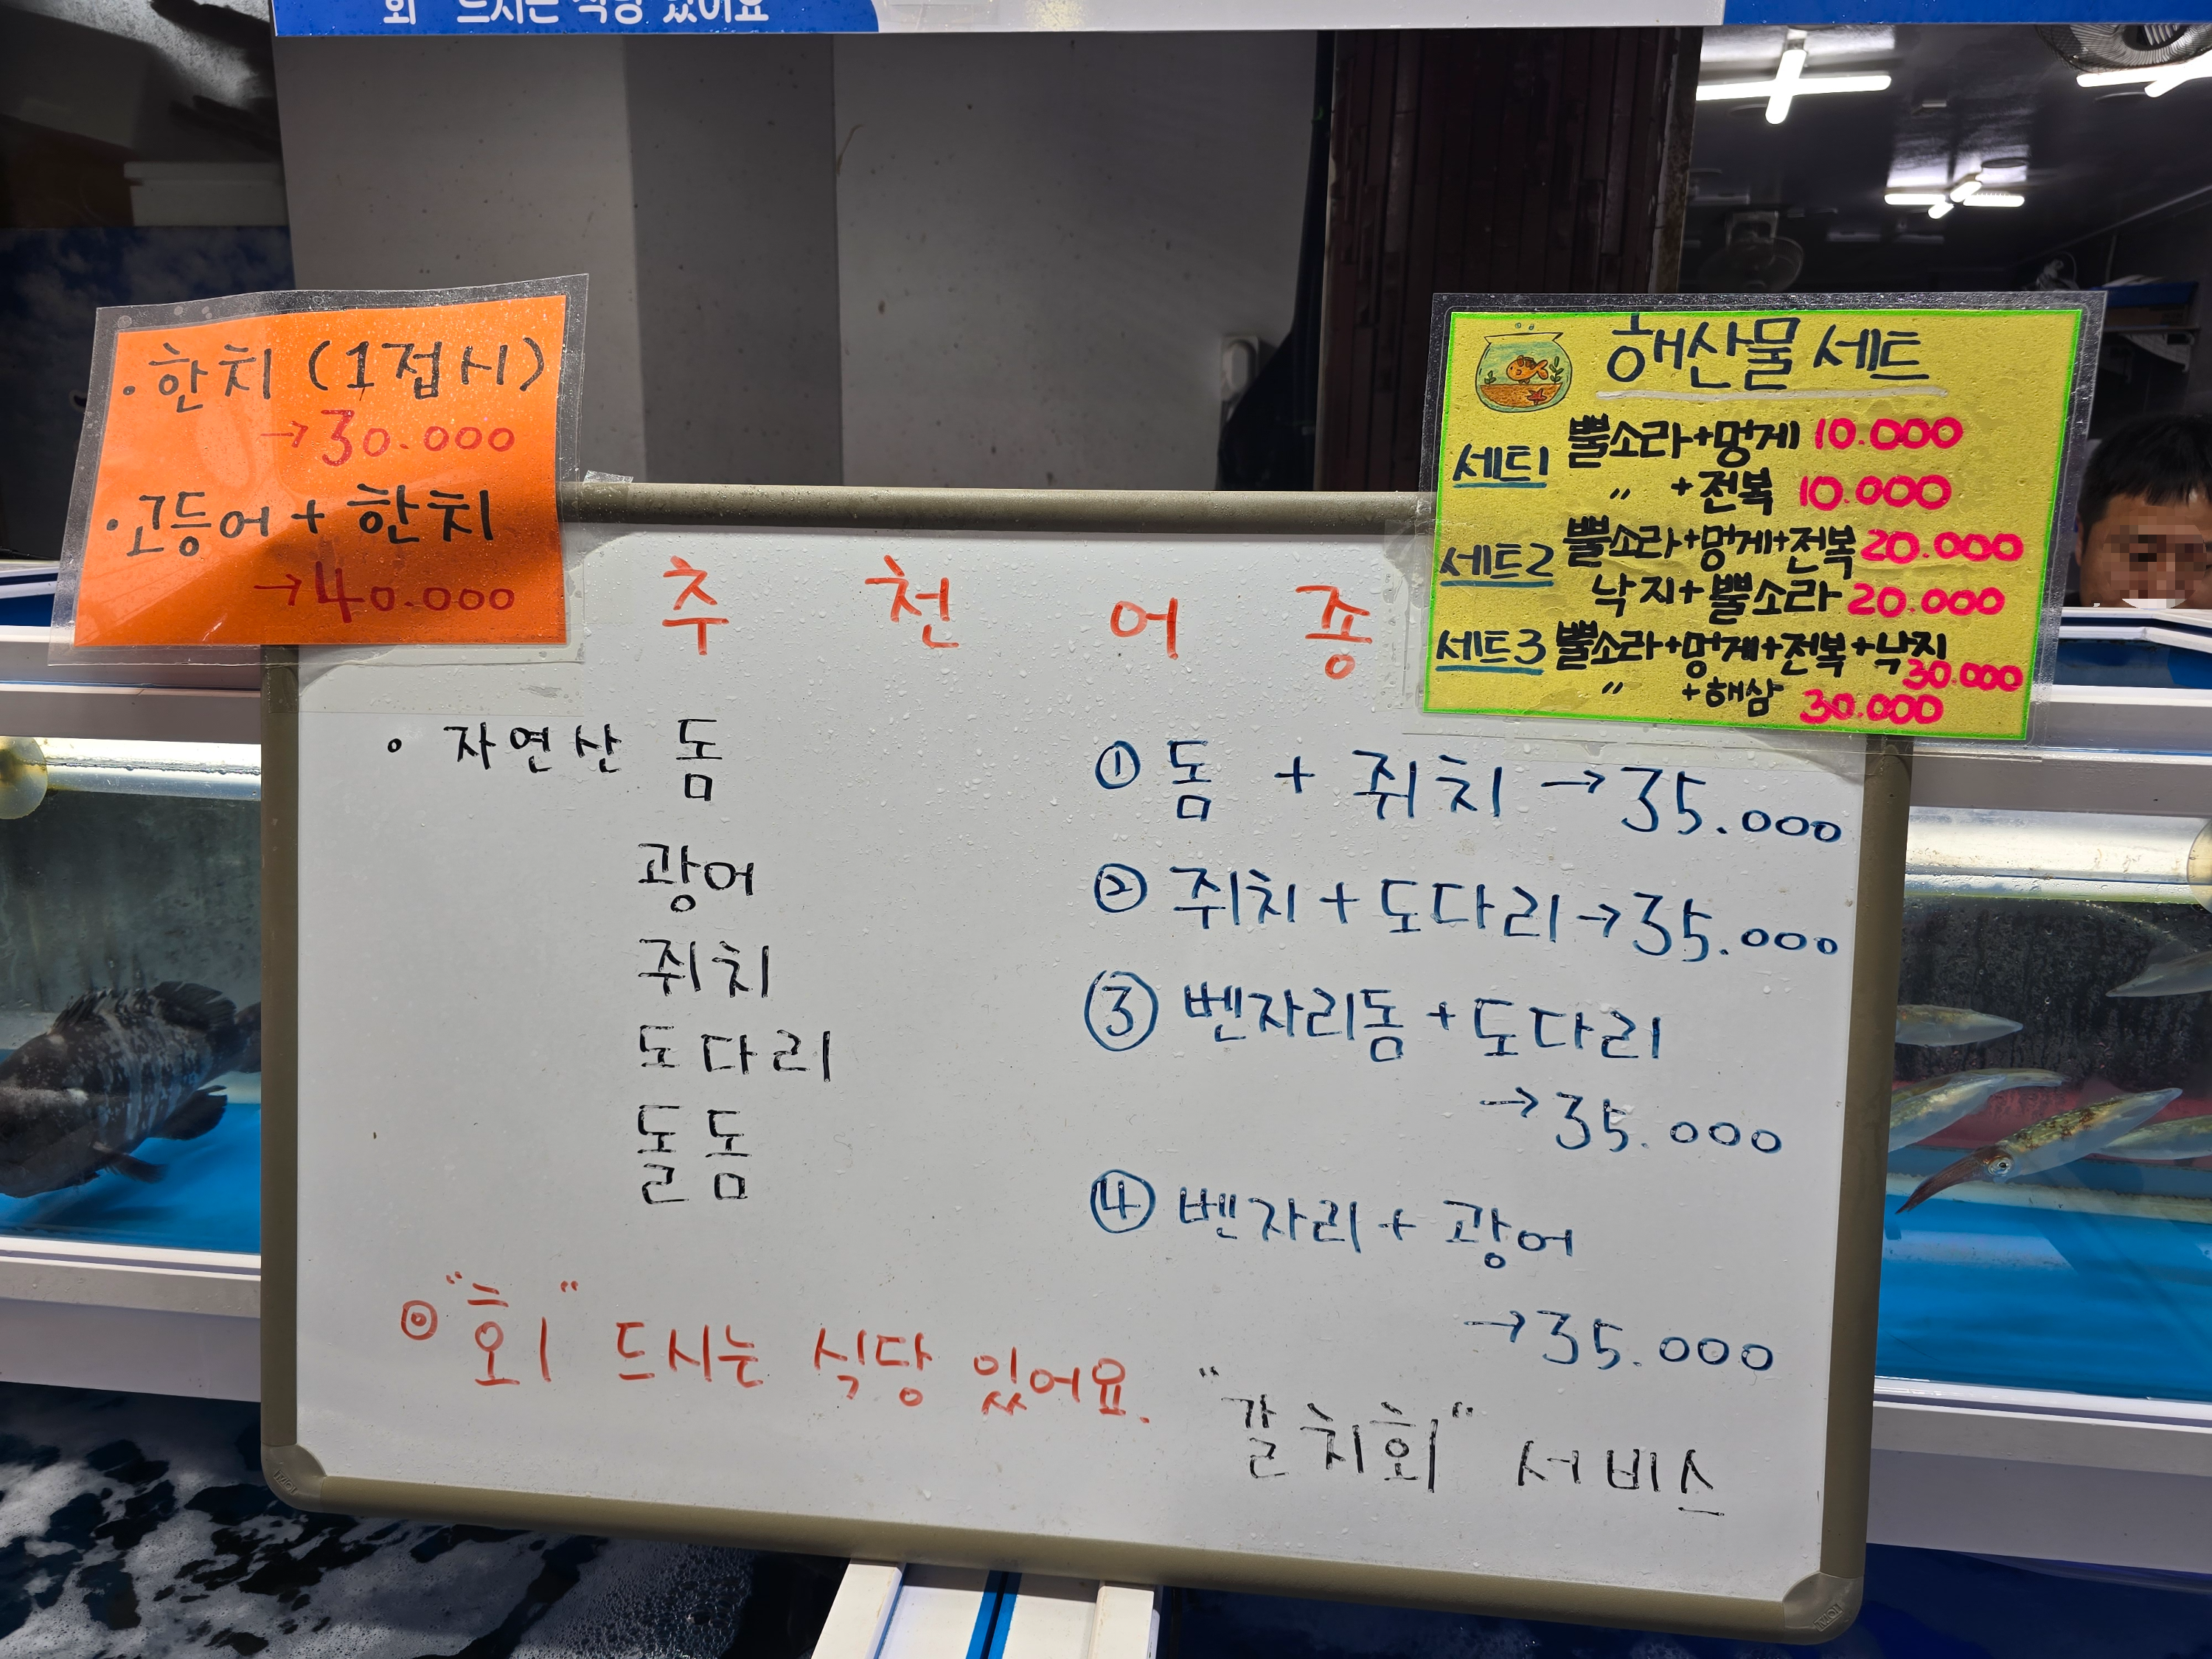 회 드시는 식당 있어요
· 한치 (1접시)
→30.000
· 고등어 + 한치
→40.000
해산물 세트
세트1 뿔소라+멍게 10.000
〃 +전복 10.000
세트2 뿔소라+멍게+전복 20.000
낙지+뿔소라 20.000
세트3 뿔소라+멍게+전복+낙지
30.000
〃 +해삼 30.000
추 천 어 종
∘ 자연산 돔
광어
쥐치
도다리
돌돔
① 돔 + 쥐치 → 35.000
② 쥐치 + 도다리 → 35.000
③ 벤자리돔 + 도다리
→ 35.000
④ 벤자리 + 광어
→ 35.000
◎ "회" 드시는 식당 있어요.
"갈치회" 서비스